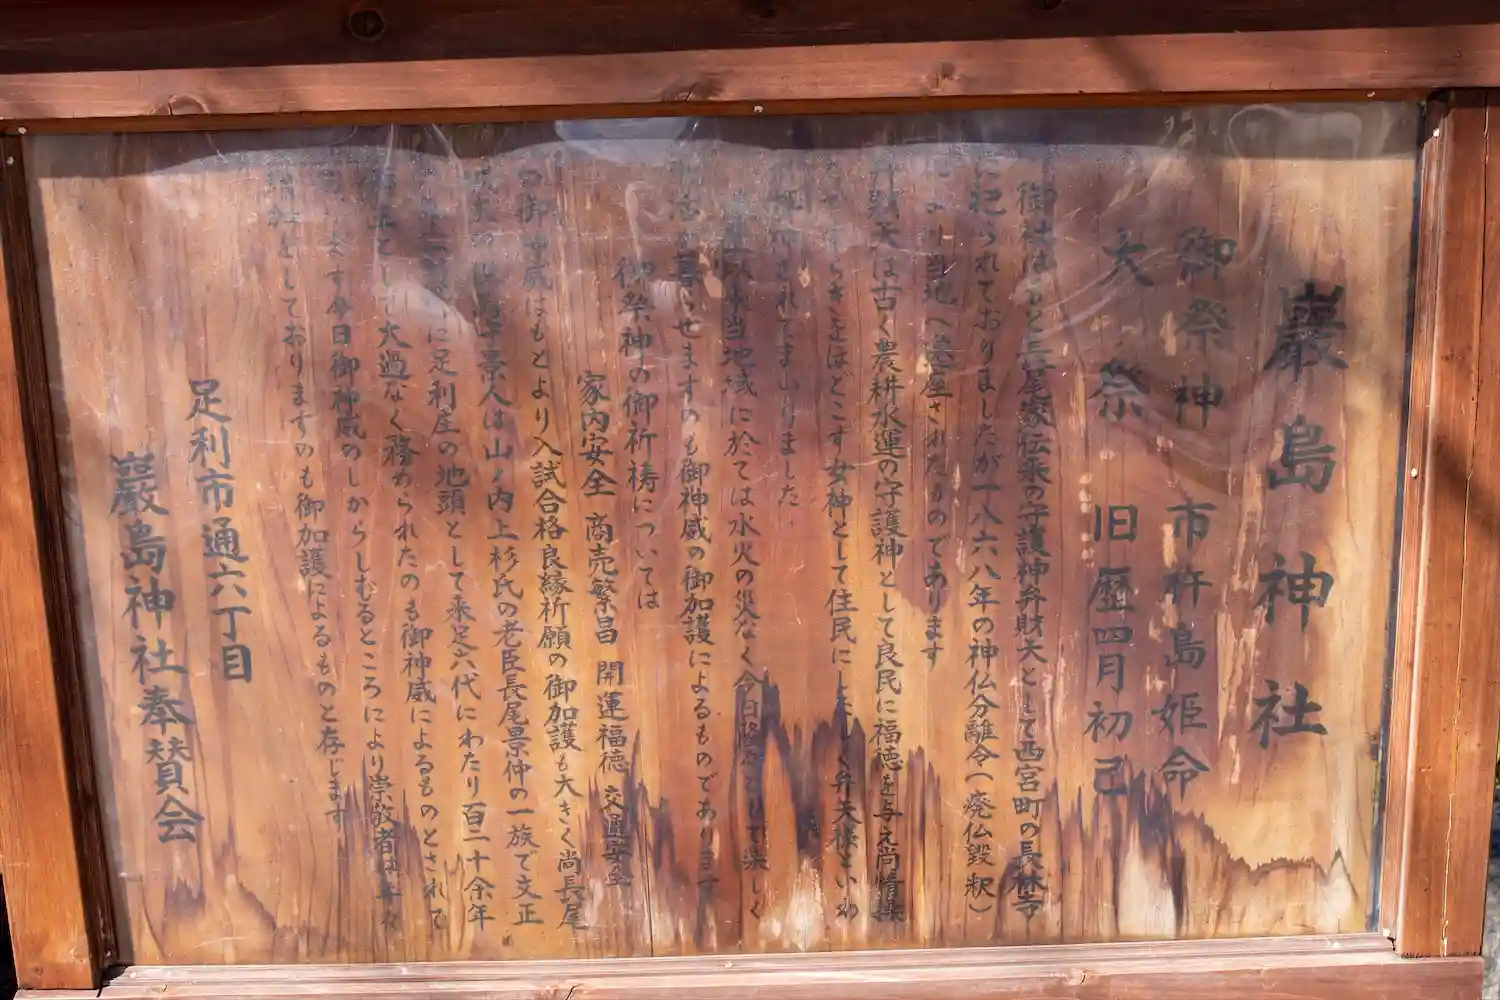 巌島神社
御祭神 市杵島姫命
大祭 旧歴四月初己
御社はもと長尾家伝来の守護神弁財天として西宮町の長林寺
に祀られておりましたが一八六八年の神仏分離令(廃仏毀釈)
により当地へ遷座されたものであります
弁財天は古く農耕水運の守護神として良民に福徳を与え尚情操
らきをほどこす女神として住民にしたしく弁天様といわ
されてまいりました
当地域に於ては水火の災なく今日隆々として楽しく
暮らせますのも御神威の御加護によるものであります
御祭神の御祈祷については
家内安全 商売繁昌 開運福徳 交通安全
の御神威はもとより入試合格良縁祈願の御加護も大きく尚長尾
景人は山ノ内上杉氏の老臣長尾景仲の一族で文正
に足利庄の地頭として来足六代にわたり百二十余年
として大過なく務められたのも御神威によるものとされて
ます今日御神威のしからしむるところにより崇敬者は年々
増加としておりますのも御加護によるものと存じます
足利市通六丁目
巌島神社奉賛会